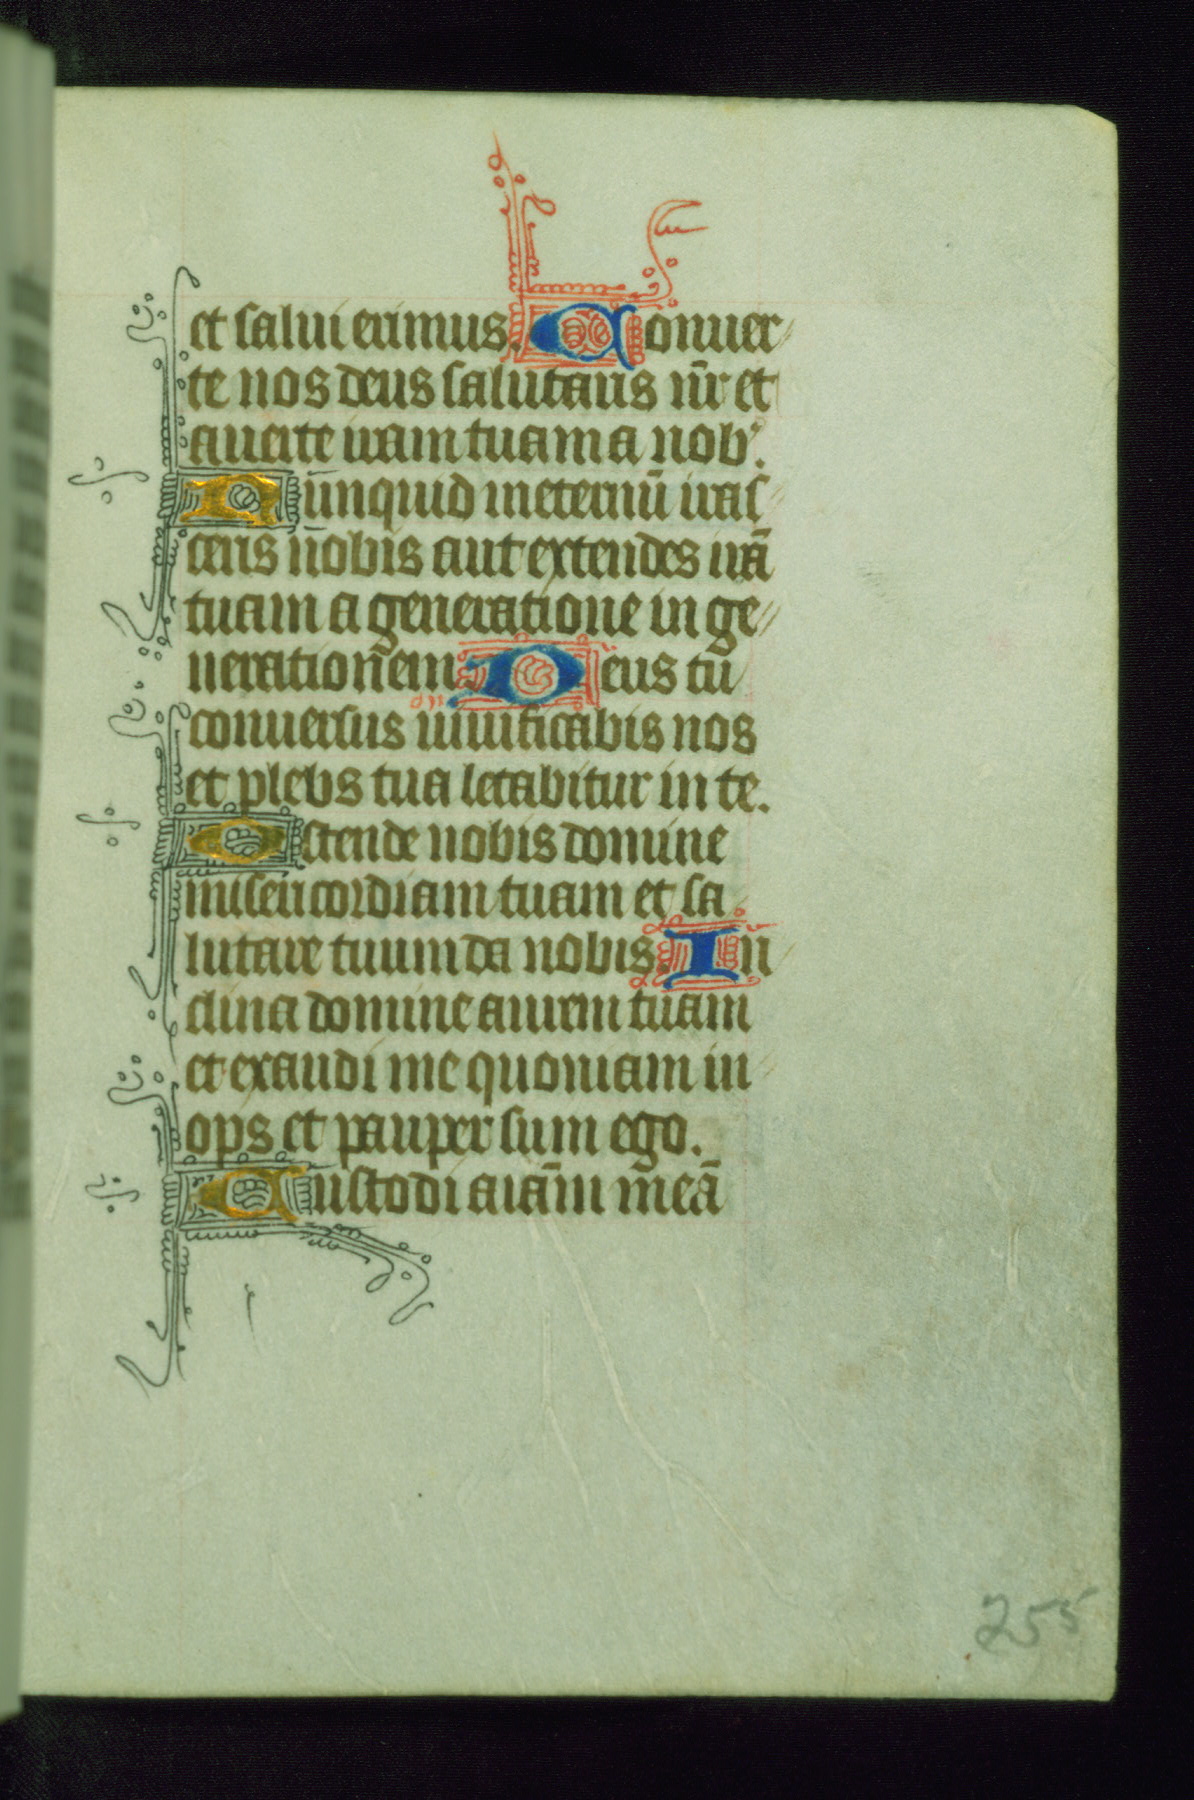 et salui erimus. Conuer
te nos deus salutaris nr̄ et
auerte iram tuam a nob⁹.
Nunquid in eternū iras
ceris nobis aut extendes irā
tuam a generatione in ge
nerationem. Deus tu
conuersus uiuificabis nos
et plebs tua letabitur in te.
Ostende nobis domine
misericordiam tuam et sa
lutare tuum da nobis. In
clina domine aurem tuam
et exaudi me quoniam in
ops et pauper sum ego.
Custodi aīam meā
255